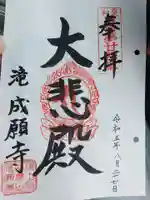 奉拝
大悲殿
滝成願寺
令和五年八月三十日